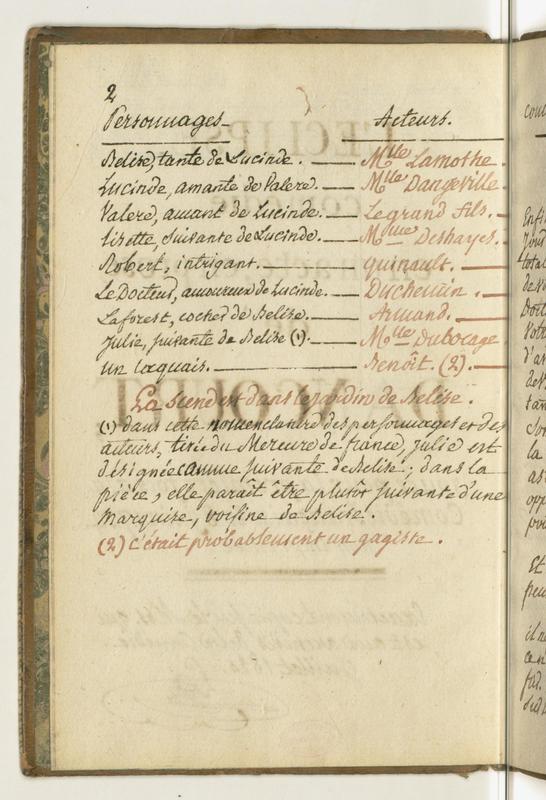 2
Personnages — Acteurs.
Belise, tante de Lucinde. — Mlle Lamothe.
Lucinde, amante de Valere. — Mlle Dangeville.
Valere, amant de Lucinde. — Legrand fils.
Lisette, suivante de Lucinde. — Mme Deshayes.
Robert, intrigant. — Quinault.
Le Docteur, amoureux de Lucinde. — Duchemin.
Laforest, cocher de Belise. — Armand.
Julie, suivante de Belise (1). — Mlle Dubocage
un Laquais. — Benoît. (2).
La Scene est dans le jardin de Belise.
(1) dans cette nomenclature des personnages et des
acteurs, tirée du Mercure de france, Julie est
désignée comme suivante de Belise; dans la
pièce, elle paraît être plutôt suivante d'une
Marquise, voisine de Belise.
(2) C'était probablement un gagiste.